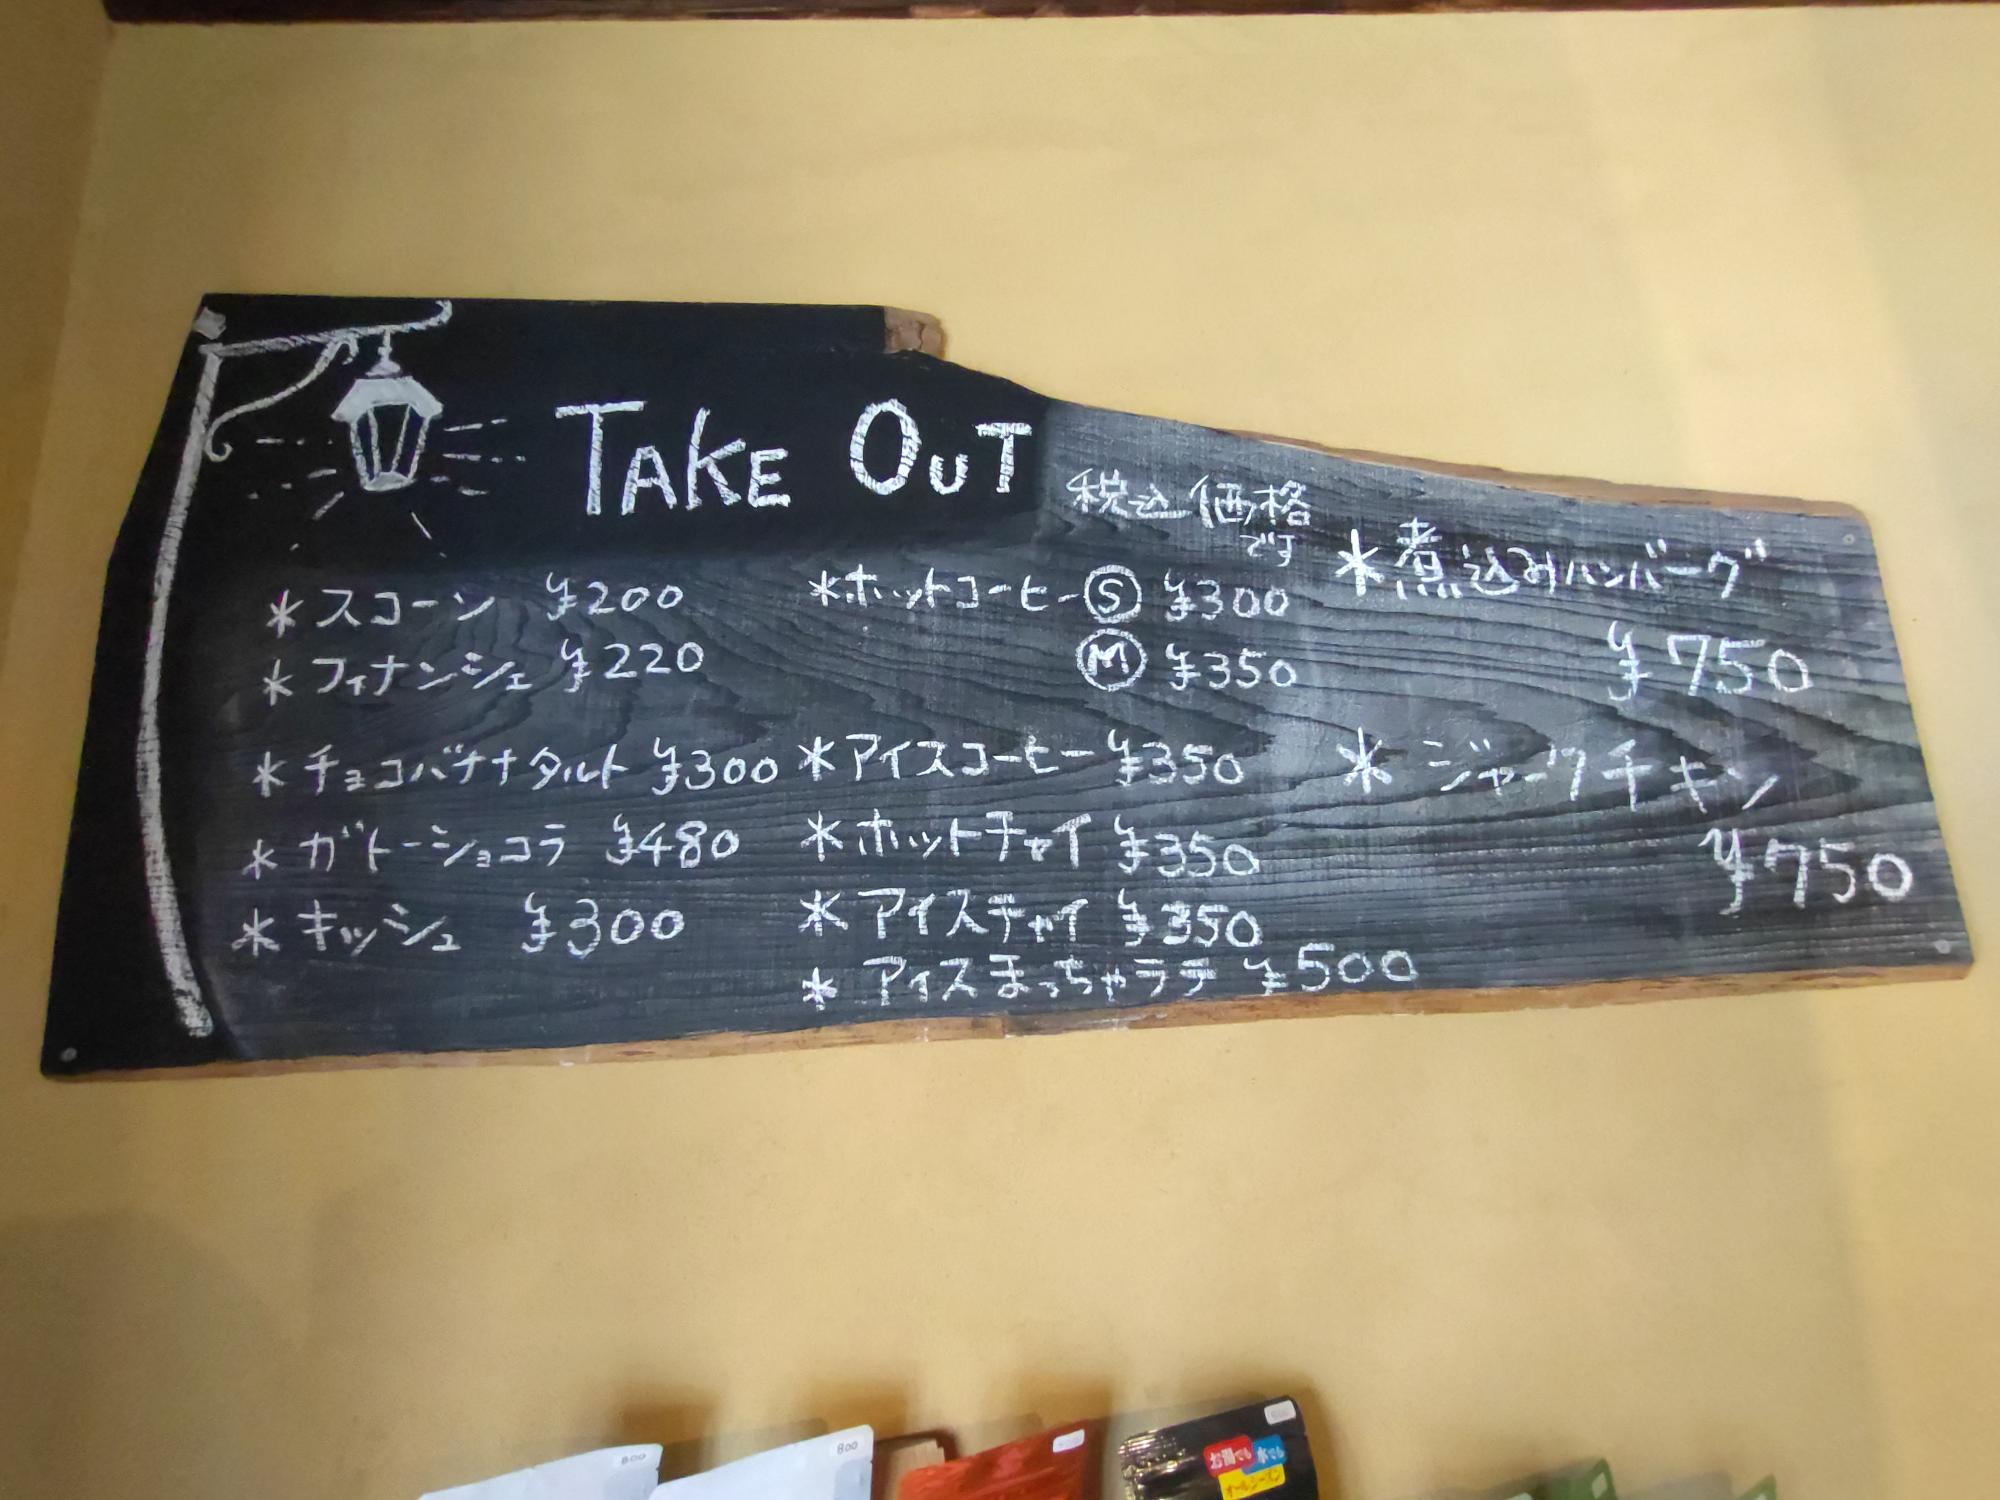 TAKE OUT
税込価格
です
*スコーン ¥200
*フィナンシェ ¥220
*チョコバナナタルト ¥300
*ガトーショコラ ¥480
*キッシュ ¥300
*ホットコーヒー Ⓢ ¥300
Ⓜ ¥350
*アイスコーヒー ¥350
*ホットチャイ ¥350
*アイスチャイ ¥350
*アイスまっちゃラテ ¥500
*煮込みハンバーグ
¥750
*ジャークチキン
¥750
800
800
お湯でも
水でも
オールシーズン